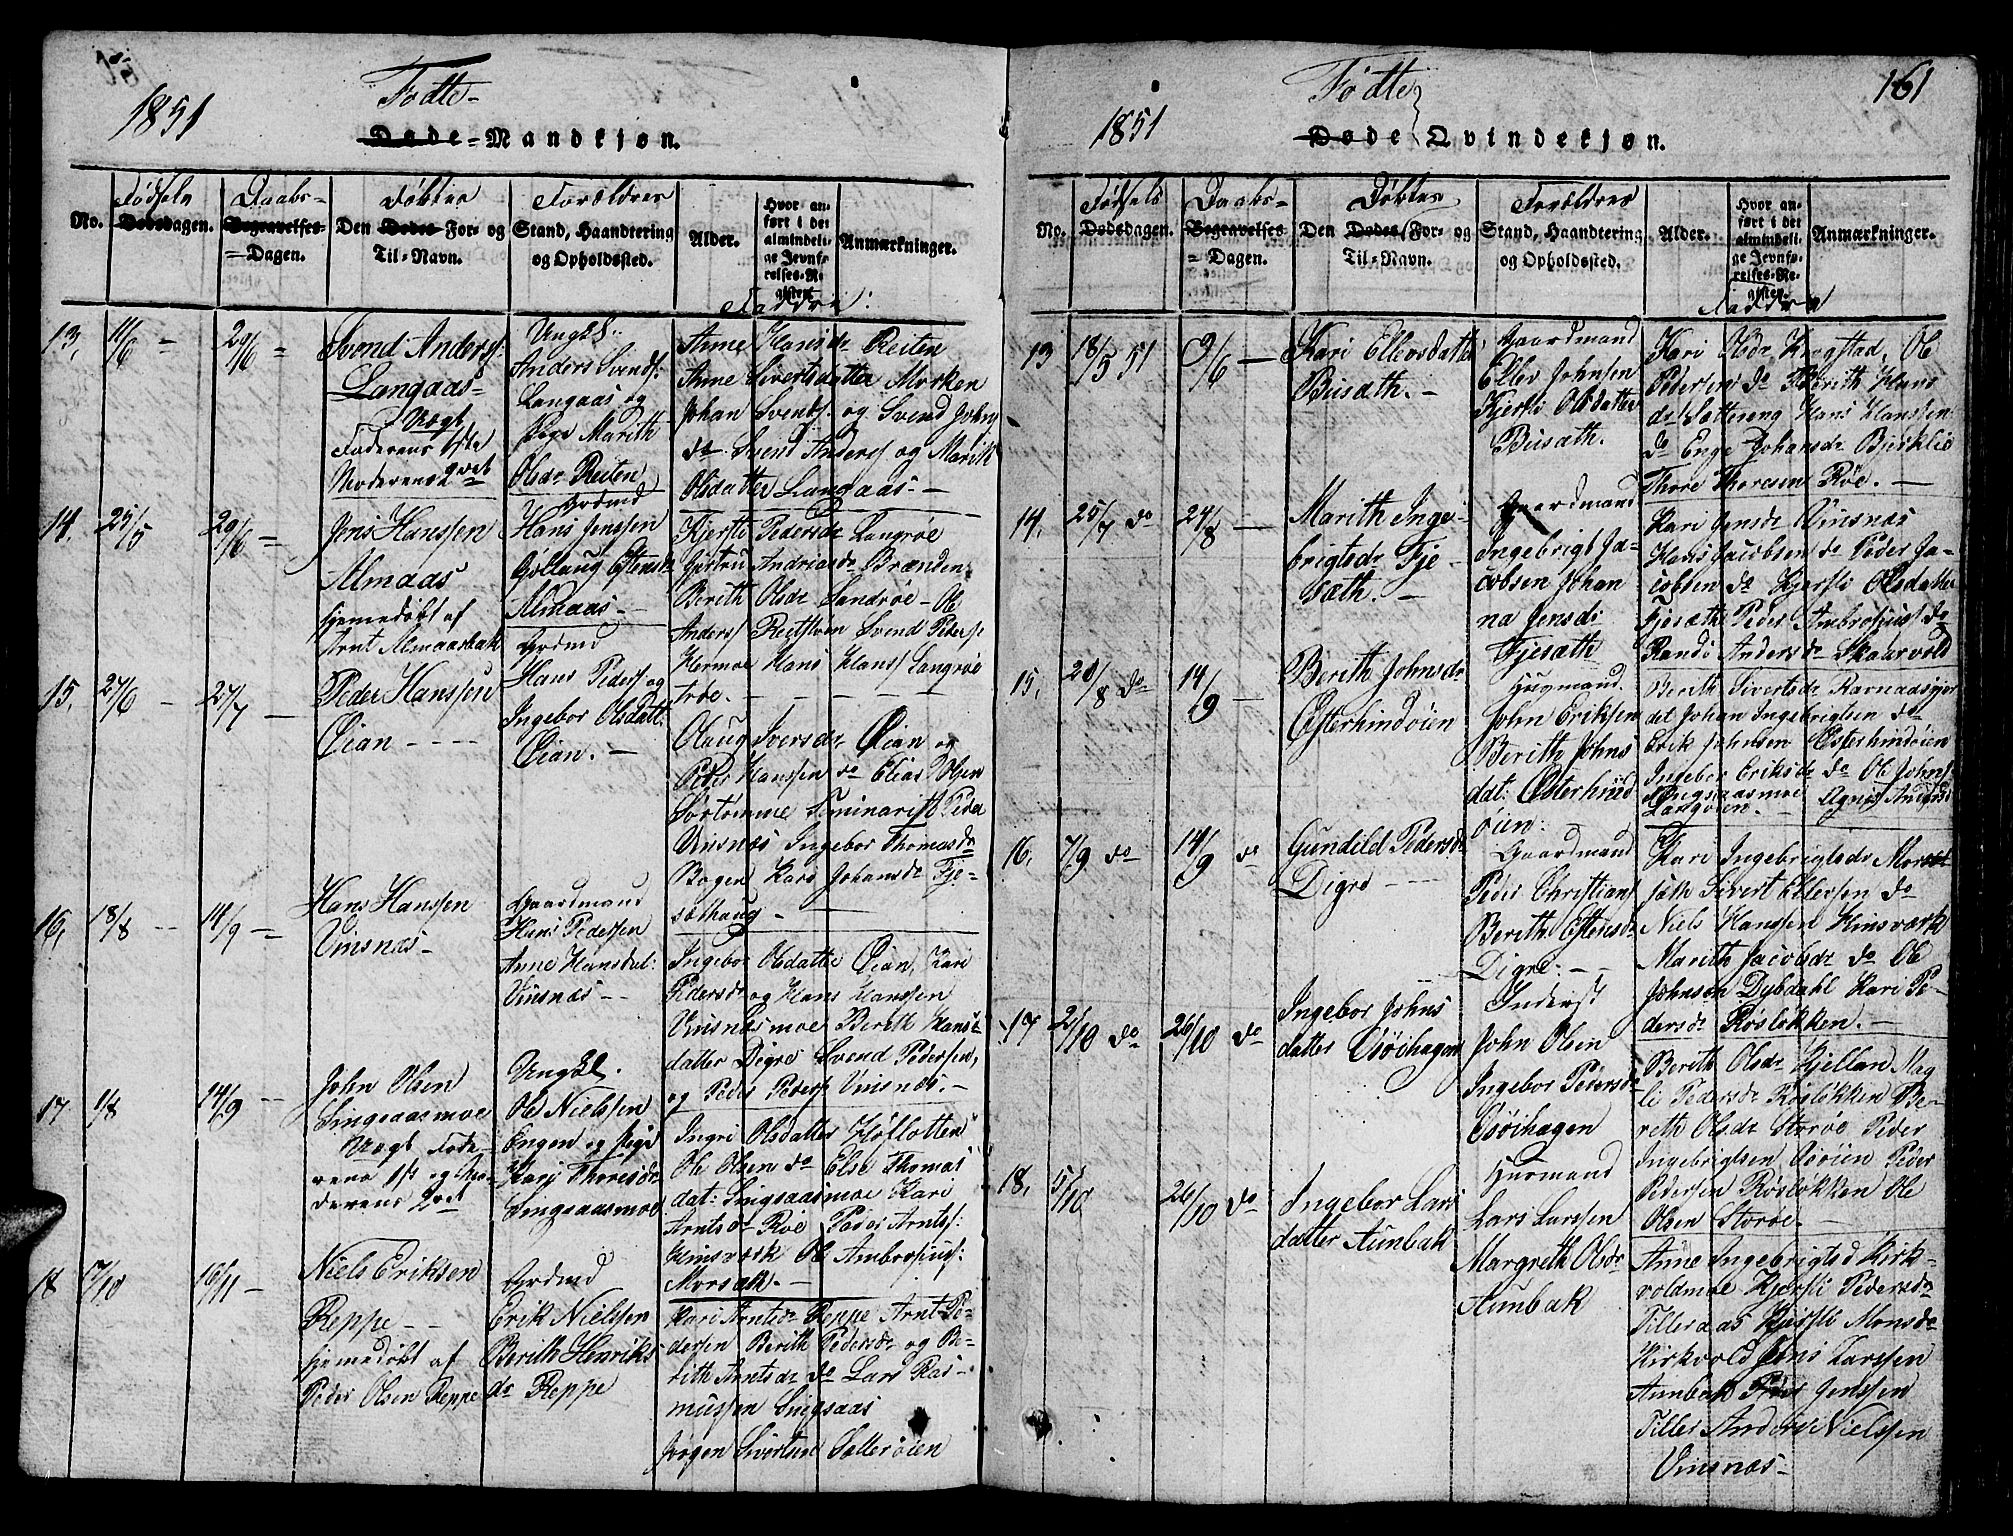 1851
Fødte
Døde-Mandkjøn.
No.
Fødsels
Dødsdagen.
Daabs-
Begravelses-
Dagen.
Døbtes
Den Dødes For- og
Til-Navn.
Forældres
Stand, Haandtering
og Opholdssted.
Alder.
Hvor an-
ført i det
almindeli-
ge Jevnfø-
relses-Re-
gister.
Anmærkninger.
Faddere:
13, 11/6 = 29/6 =
Svend Anders:
Langaas-
Uægt
Faderens 1ste
Moderens 2det
Ungkl.
Anders Svends:
Langaas og
Pige Marith
Olsdr Reiten
Anne Hansdr Reiten
Anne Sivertsdatter Morken
Johan Svends. og Svend Johns
do Svend Anders og Marith
Olsdatter Langaas. -
14. 25/5 29/6 =
Jens Hanssen
Almaas
hjemedøbt af
Arnt Almaasbak
Grdmd
Hans Jenssen
Gollaug Estensd
Almaas -
Kjersti Pedersdr Langrøe
Gjertru Andriasdr Brænden
Berith Olsdr Sandrøe - Ole
Anders Reitstuen Svend Peders
Hermoe Hans Hans Langrøe
trøe. - - - -
15, 27/6 - 27/7 -
Peder Hanssen
Øian - - - -
Grdmd
Hans Peders og
Ingebor Olsdatt.
Øian. -
Olaug Iversdr Øian og
Peder Hanssen do Elias Olsen
Sørtømme Seminarist Peder
Vinsnæs Ingebor Thomasdr
Bogen Kari Johansdr Fje-
sæthaug -
16, 18/8 - 14/9 -
Hans Hanssen
Vinsnæs-
Gaardmand
Hans Pedersen
Anne Hansdat:
Vinsnæs - -
Ingebor Olsdatte Øian, Kari
Pedersdr og Hans Hanssen
Vinsnæsmoe Berith Hans
datter Digre Svend Pedersen,
og Peder Peders Vinsnæs. -
17 1/8 14/9 -
John Olsen
Singsaasmoe
Uægt Fade-
rens 1ste og Mo-
derens 2det
Ungkl.
Ole Nielssen
Engen og Pige
Kari Thoresdr
Singsaasmoe
Ingri Olsdatter Høflotten
Ole Olsen do Else Thomas
dat: Singsaasmoe Kari
Arntsdr Røe Peder Arnts:
Kinsværk Ole Ambrosius:
Morsæth. -
18 17/10 16/11 -
Niels Eriksen
Reppe - -
hjemedøbt af
Peder Olsen Reppe
Grdmd
Erik Nielssen
Berith Henriks
dr Reppe
Kari Arntsdr Reppe Arnt Pe-
dersen Berith Pedersdr og Be-
rith Arntsdr do Lars Ras-
mussen Singsaas
Jørgen Sivertsen Sætterøien
1851
Fødte
161
Døde Qvindekjøn.
No.
Fødsels
Dødsdagen.
Daabs-
Begravelses
Dagen.
Døbtes
Den Dødes For- og
Til-Navn.
Forældres
Stand, Haandtering
og Opholdssted.
Alder.
Hvor an-
ført i det
almindeli-
ge Jevnfø-
relses-Re-
gister.
Anmærkninger.
Faddere
13 18/5 51 9/6 -
Kari Ellevsdatter
Busæth. -
Gaardmand
Ellev Johnsen
Kjersti Olsdatter
Busæth.
Kari Olsdr Krogstad, Ole
Pedersen do Berith Hans
dr Sættereng Hans Hanssen
do Enge Johansdr Bjerklie
Thore Thoresen Røe. -
14. 25/7 do 24/8 -
Marith Inge-
brigtsdr Fje-
sæth. -
Gaardmand
Ingebrigt Ja-
cobsen Johan
na Jensdr
Fjesæth
Kari Jensdr Vinsnæs
Hans Jacobsen do Peder Ja-
cobsen do Kjersti Olsdatter
Fjesæth Peder Ambrosius do
Randi Andersdr Skaarvold
15, 20/8 do 14/9 -
Berith Johnsdr
Østerhindøien
Huusmand.
John Eriksen
Berith Johns
dat: Østerhind
øien.
Berith Sivertsdr Ravnaasgjer
det Johan Ingebrigtsen do
Erik Johnsen Østerhindøien
Ingebor Eriksdr do Ole Johns
Singsaasmoe
Langøien. -
16, 7/9 do 14/9 do
Gunild Pedersdr
Digre - - -
Gaardmand
Peder Christians
Berith Estensdr
Digre. -
Kari Ingebrigtsdr Mor
sæth Sivert Ellefsen do
Niels Hanssen Kinsværk
Marith Jacobsdr do Ole
Johnsen Dybdahl Kari Pe-
dersdr Røsløkken. -
17 2/10 do 26/10 do
Ingebor Johns
datter Esøihagen
Inderst
John Olsen
Ingebor Pedersdr
Esøihagen
Berith Olsdr Kjellan Mag
li Pedersdr Røsløkken Be-
reth Olsdr Storøe Peder
Ingebrigtsen Esøien Peder
Pedersen Røsløkken Ole
Olsen Storøe. -
18, 5/10 26/10 do
Ingebor Lars
datter Aunbak
Husmand
Lars Larssen
Margreth Olsdr
Aunbak
Anne Ingebrigtsd Kirk-
voldmoe Kjersti Pedersdr
Tilleraas Kjersti Monsdr
Kirkvold Jens Larssen
Aunbak Peder Jenssen
Tiller Anders Nielssen
Vinsnæs-